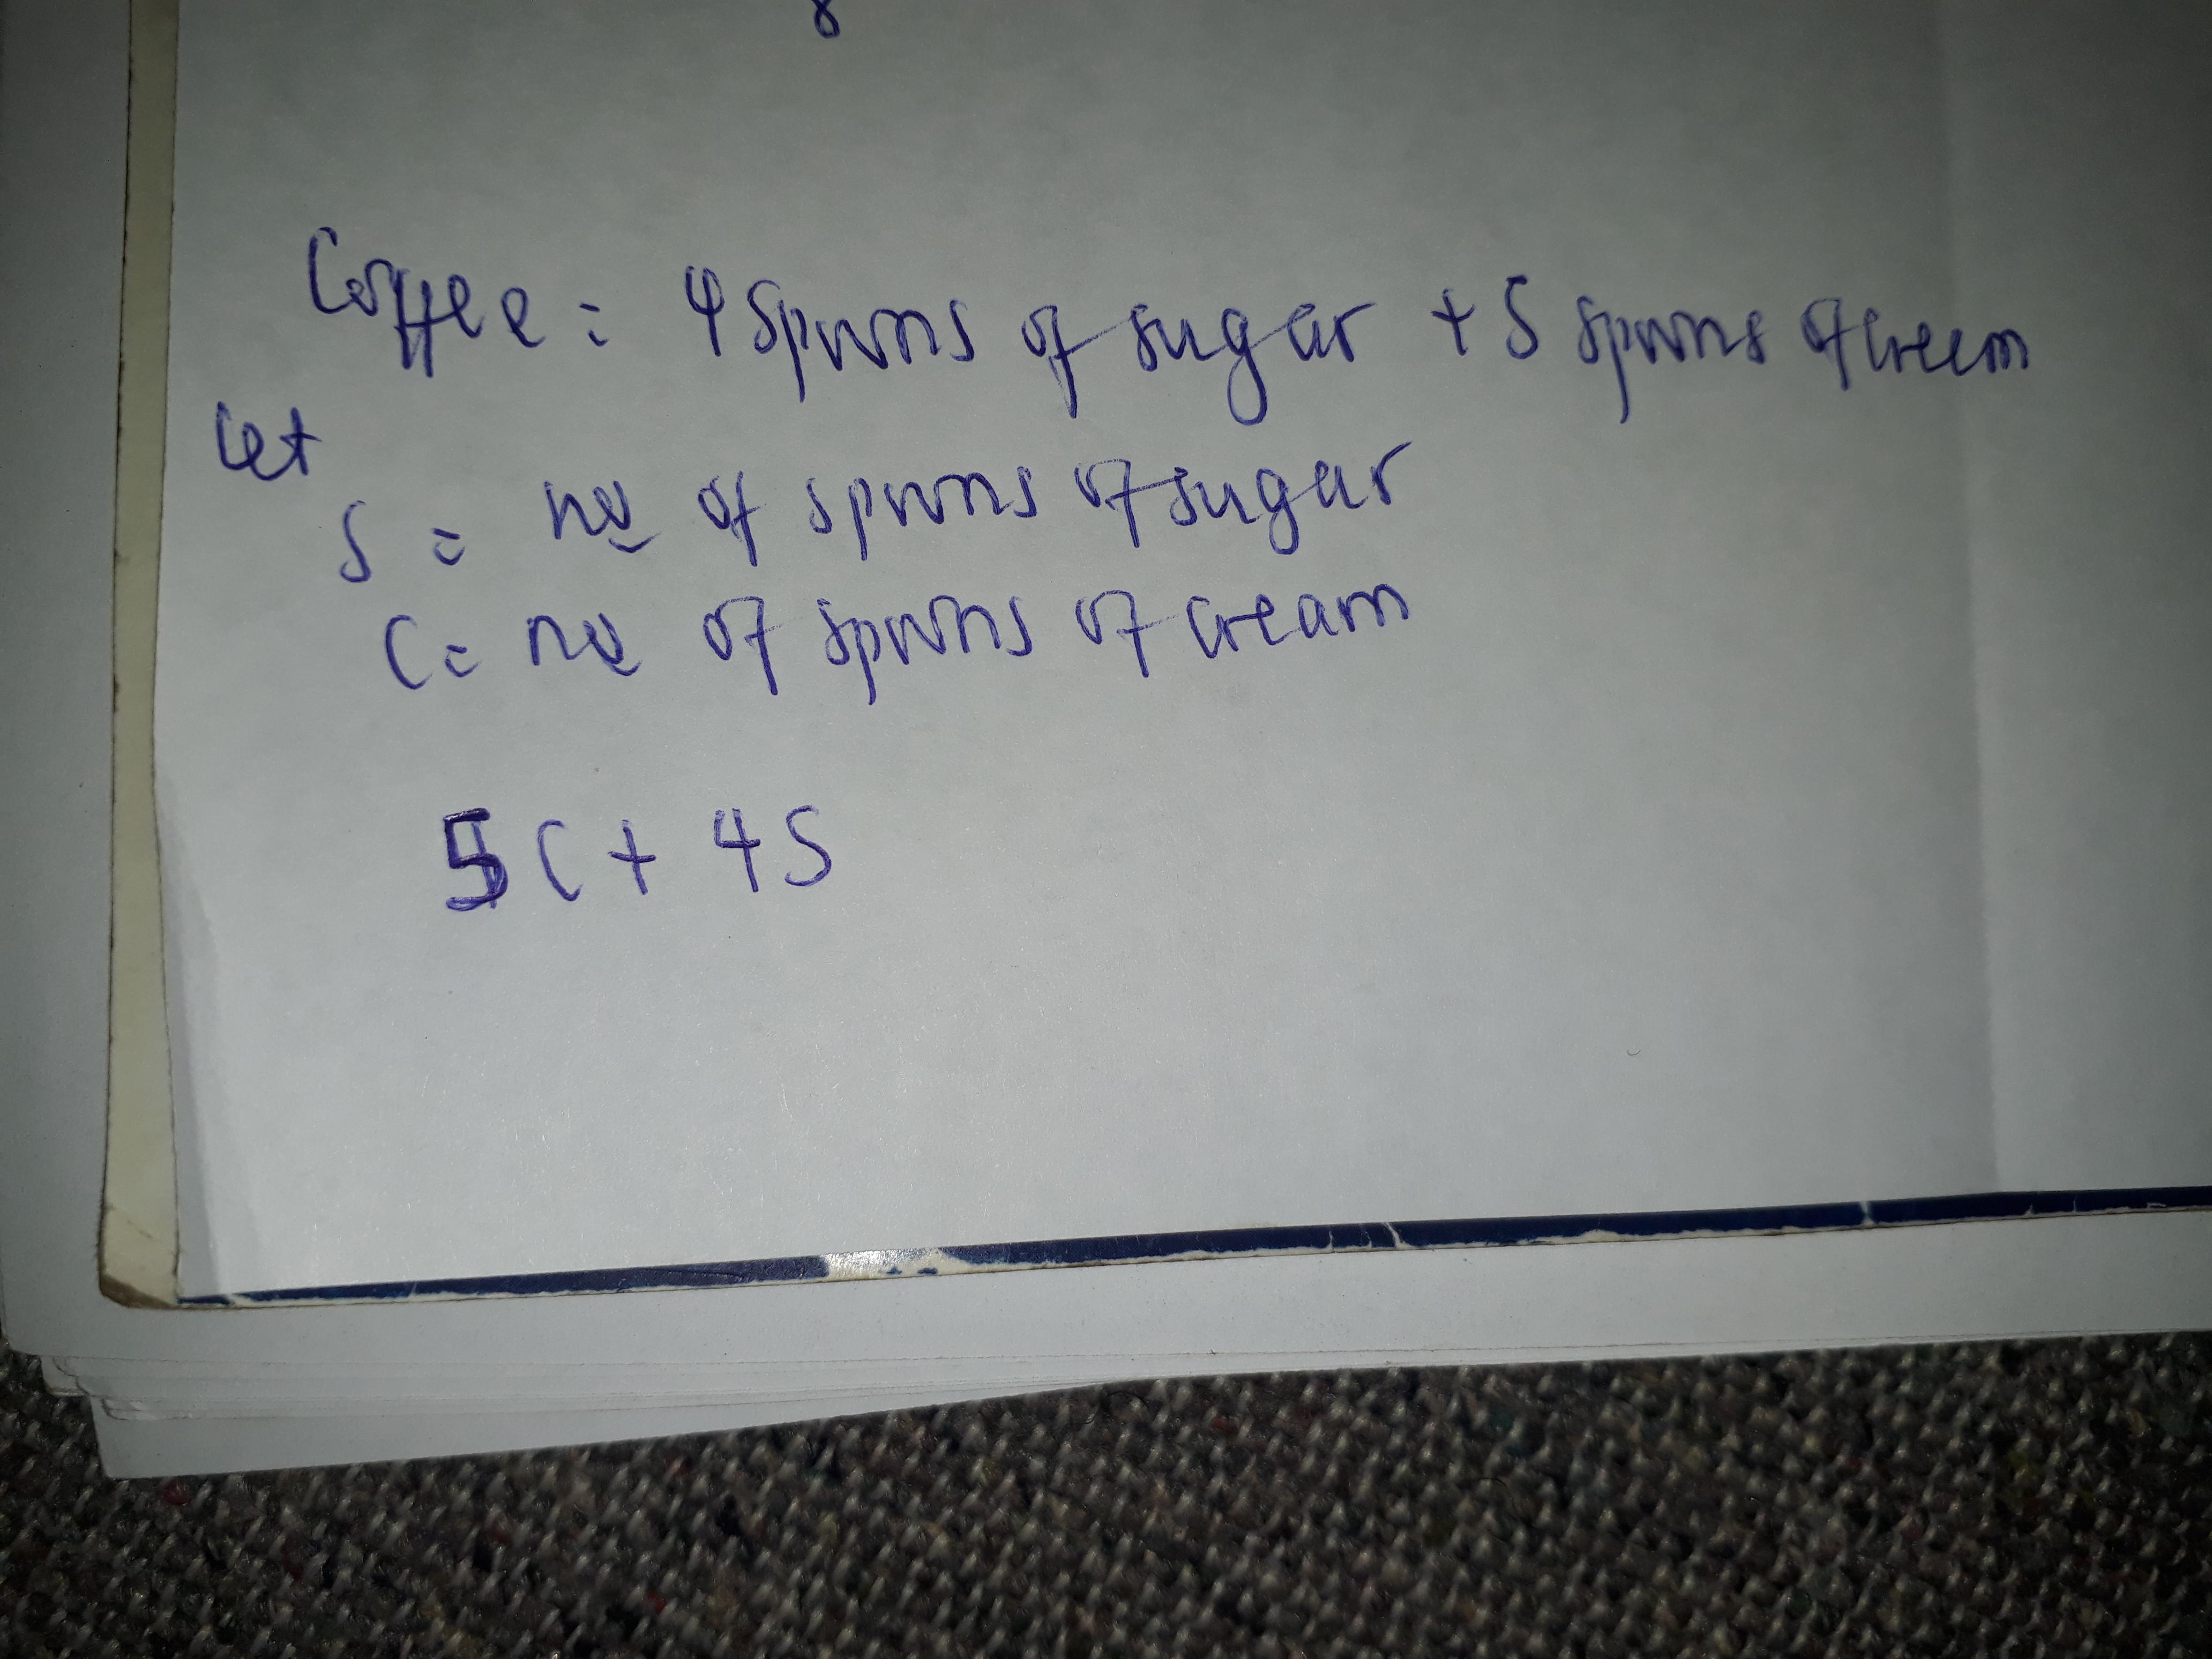 8
Coffee = 4 spoons of sugar + 5 spoons of cream
let
S = no of spoons of sugar
C = no of spoons of cream
5C + 4S